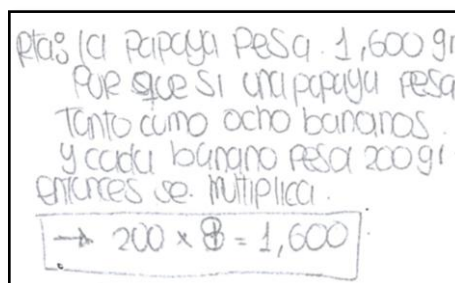 Rta: la papaya pesa. 1,600 gr
Por que si una papaya pesa
Tanto como ocho bananos.
y cada banano pesa 200 gr
entonces se multiplica.
→ 200 x 8 = 1,600